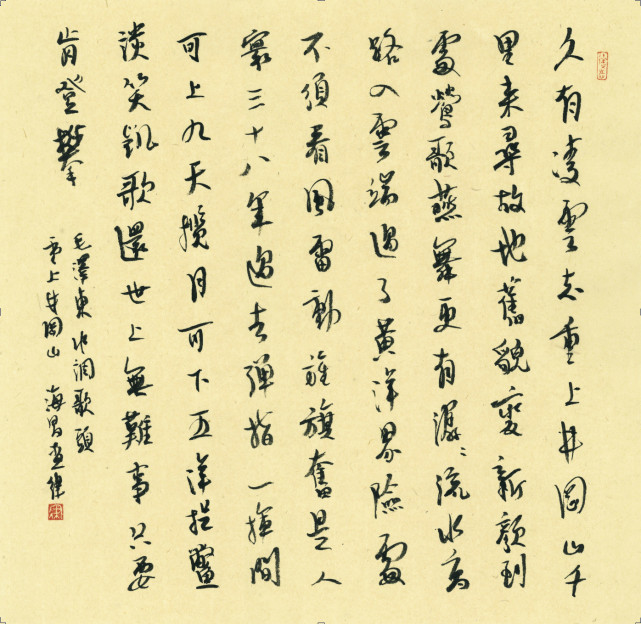 久有凌雲志重上井岡山千
里来尋故地舊貌變新顏到
處鶯歌燕舞更有潺々流水高
路入雲端過了黃洋界險處
不須看風雷動旌旗奮是人
寰三十八年過去彈指一揮間
可上九天攬月可下五洋捉鱉
談笑凱歌還世上無難事只要
肯登攀
毛澤東水調歌頭
重上井岡山 海